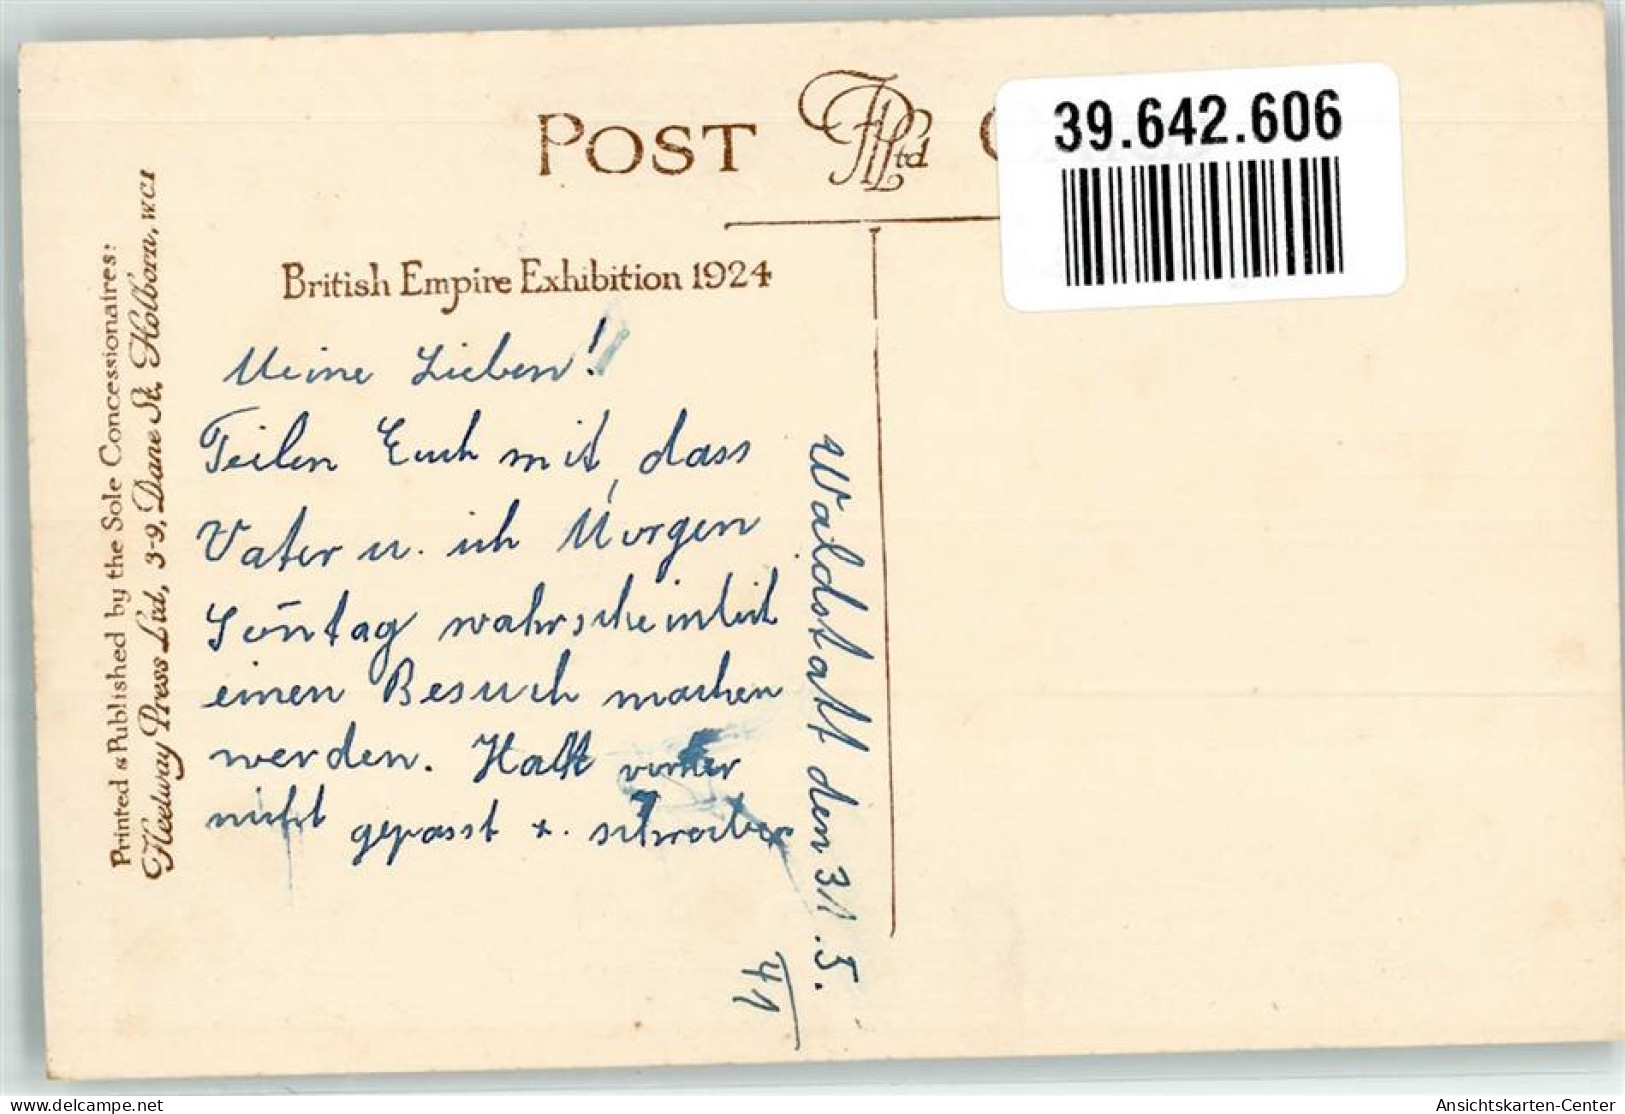 POST C
FPLtd
39.642.606
British Empire Exhibition 1924
Printed & Published by the Sole Concessionaires:
Fleetway Press Ltd, 3-9, Dane St. Holborn, WC1
Meine Lieben!
Teilen Euch mit, dass
Vater u. ich Morgen
Son̄tag wahrscheinlich
einen Besuch machen
werden. Hatt vorher
nicht gepasst z.
Waldstatt den 31.5.
41
delcampe.net
Ansichtskarten-Center